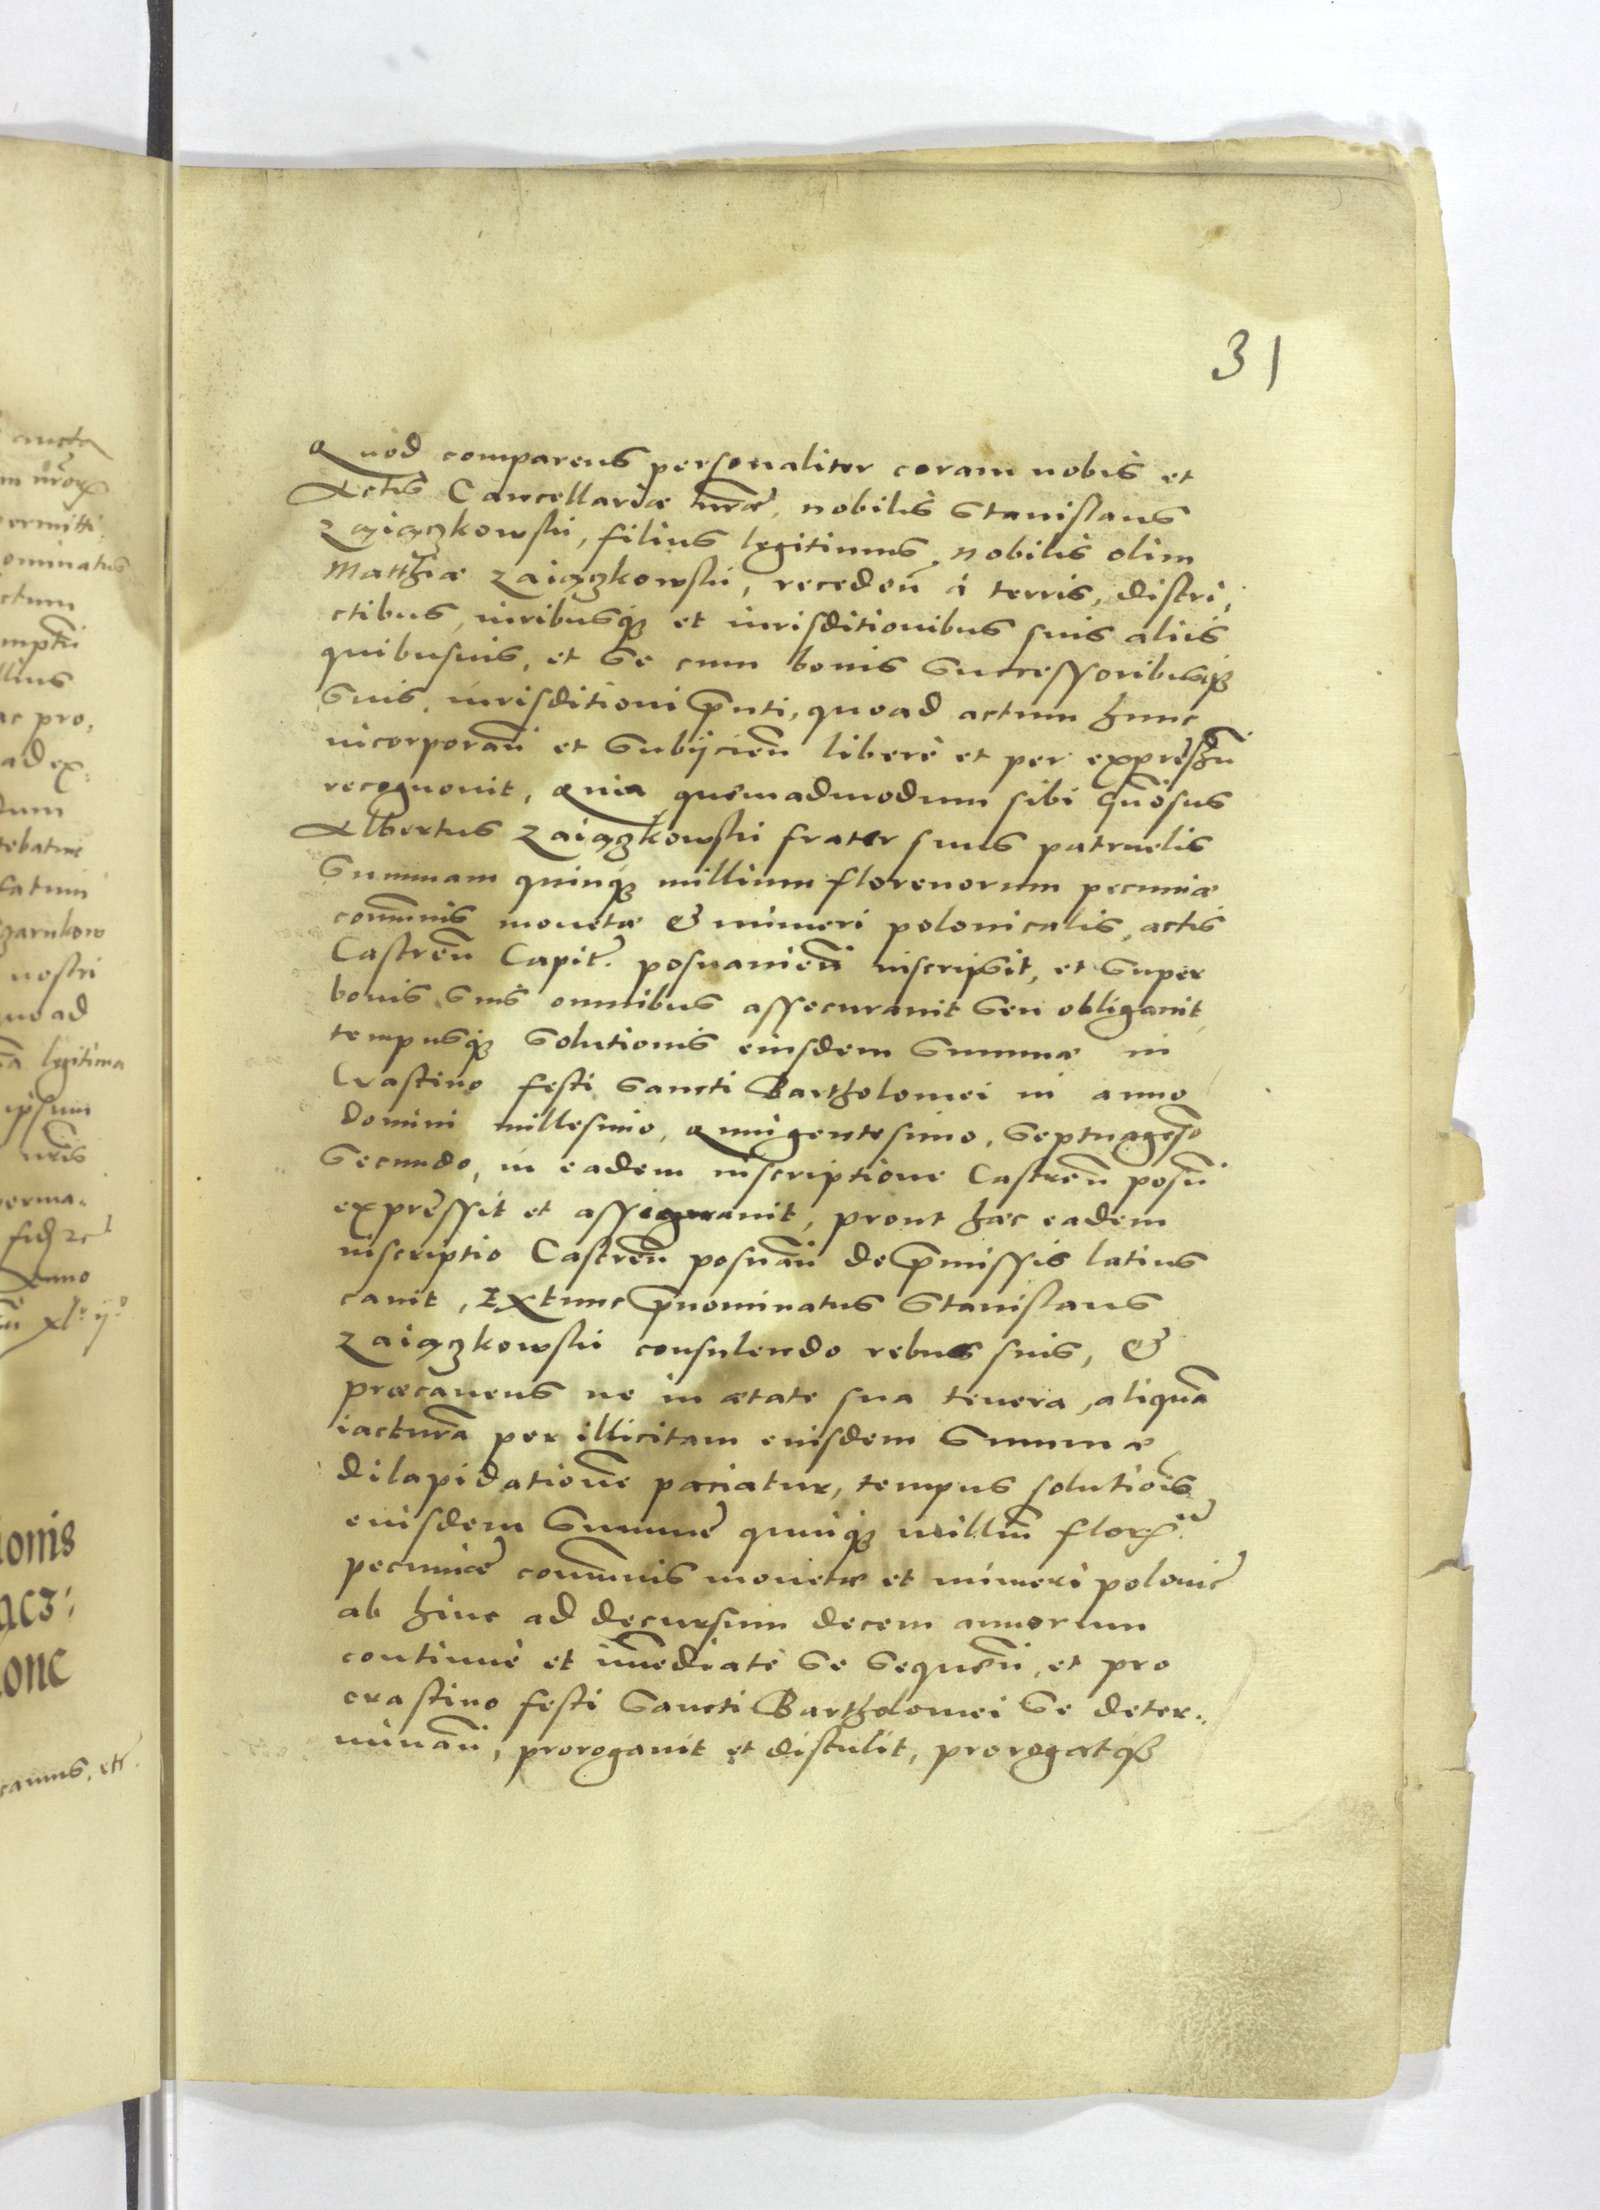 31
Quod comparens personaliter coram nobis et
Actis Cancellariæ nr̃æ, nobilis Stanislaus
Zaiączkowski, filius legitimus, nobilis olim
Matthiæ Zaiączkowski, receden̄ à terris, distri,
ctibus, iuribusq₃ et iurisditionibus suis aliis
quibusuis, et se cum bonis successoribusq₃
suis, iurisditioni p̄nti, quoad actum hunc
incorporan̄ et subijcien̄ liberè et per expressũ
recognouit, Quia quemadmodum sibi Gn̄osus
Albertus Zaiączkowski frater suus patruelis
Summam quinq₃ millium florenorum pecuniæ
com̃unis monetæ & numeri polonicalis, actis
Castren̄ Capit̃. posnanien̄ inscripsit, et super
bonis suis omnibus assecurauit seu obligauit,
tempusq₃ solutionis eiusdem summæ in
Crastino festi Sancti Bartholomei in anno
domini millesimo, Quingentesimo, Septuages̃o
Secundo, in eadem inscriptione Castren̄ posn̄
expressit et assignauit, prout hæc eadem
inscriptio Castren̄ posnan̄ de p̄missis latius
canit, Extunc p̄nominatus Stanislaus
Zaiączkowski consulendo rebus suis, &
præcauens ne in ætate sua tenera, aliquã
iacturã per illicitam eiusdem summæ
dilapidationẽ paciatur, tempus solutiõis
eiusdem Summæ quinq₃ milliũ flor̃.
pecuniæ com̃unis monetæ et numeri polonic̃
ab hinc ad decursum decem annorum
continuè et im̃ediatè se sequen̄, et pro
crastino festi Sancti Bartholomei se deter,,
minan̄, prorogauit et distulit, prorogatq₃